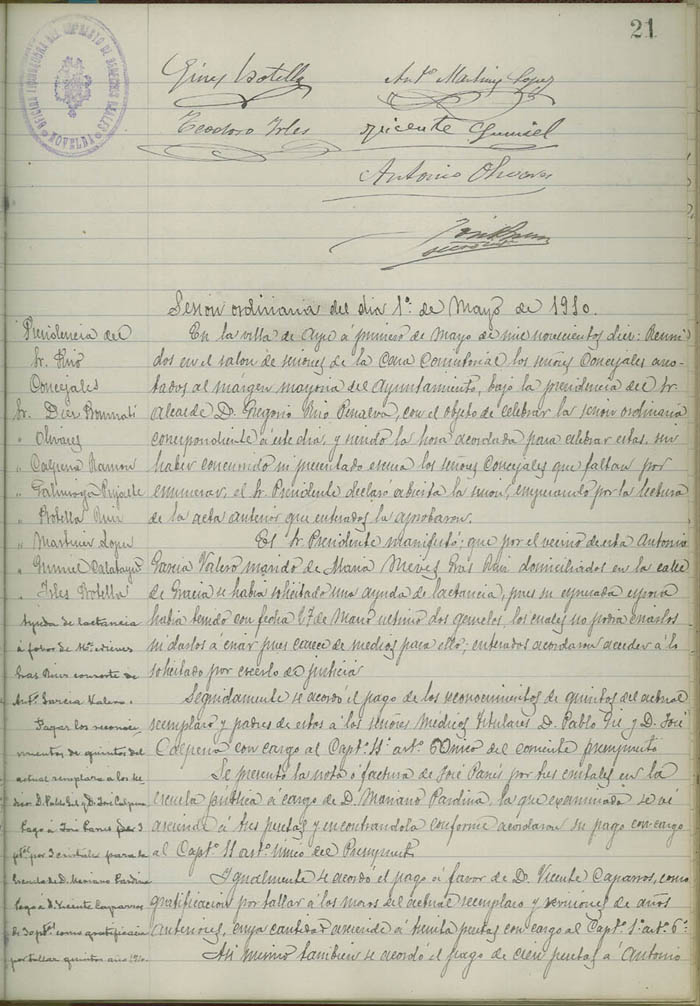 21
OFICINA LIQUIDADORA DEL IMPUESTO DE DERECHOS REALES
NOVELDA
Gines Botella
Antº Martinez Lopez
Teodoro Irles
Vicente Gumiel
Antonio Olivares
Sesion ordinaria del dia 1º de Mayo de 1910.
Presidencia del
Sr. Rizo
Concejales
Sr. Diez Bonmati
" Olivares
" Calpena Ramon
" Galinsoga Pujalte
" Botella Ruiz
" Martinez Lopez
" Gumiel Calatayud
" Irles Botella
Ayuda de lactancia
á favor de Mª Nieves
Gras Ruiz consorte de
Antº Garcia Valero.
Pagar los reconoci
mientos de quintos del
actual remplazo a los Me-
dicos D. Pablo Gil y D. José Calpena
Pago á José Panés por 3
ptas por 3 cristales para la
Escuela de D. Mariano Pardina
Pago a D. Vicente Caparros
de 30 ptas como gratificacion
por tallar quintos año 1910.
En la villa de Aspe á primero de Mayo de mil novecientos diez: Reuni
dos en el salon de sesiones de la Casa Consistorial los señores Concejales ano-
tados al margen mayoria del Ayuntamiento, bajo la presidencia del Sr.
Alcalde D. Gregorio Rizo Penalva, con el objeto de celebrar la sesion ordinaria
correspondiente á este dia, y siendo la hora acordada para celebrar estas, sin
haber concurrido ni presentado escusa los señores Concejales que faltan por
enumerar, el Sr. Presidente declaró abierta la sesion, empezando por la lectura
de la acta anterior que enterados la aprobaron.
El Sr. Presidente manifestó; que por el vecino de esta Antonio
Garcia Valero marido de Maria Nieves Gras Ruiz domiciliados en la calle
de Gracia se habia solicitado una ayuda de lactancia, pues su espresada esposa
habia tenido con fecha 27 de Marzo ultimo dos gemelos, los cuales no podia criarlos
ni darlos á criar pues carece de medios para ello; enterados acordaron acceder á lo
solicitado por creerlo de justicia
Seguidamente se acordó el pago de los reconocimientos de quintos del actual
reemplazo y padres de estos á los señores Medicos titulares D. Pablo Gil y D. José
Calpena con cargo al Captº 11 artº Unico del corriente presupuesto
Se presentó la nota ó factura de José Panés por tres cristales en la
escuela publica á cargo de D. Mariano Pardina, la que examinada se vé
asciende á tres pesetas y encontrandola conforme acordaron su pago con cargo
al Captº 11 artº Unico del Presupuesto
Igualmente se acordó el pago á favor de D. Vicente Caparros, como
gratificacion por tallar á los mozos del actual reemplazo y revisiones de años
anteriores, cuya cantidad asciende á treinta pesetas con cargo al Captº 1º artº 6º
Asi mismo tambien se acordó el pago de cien pesetas á Antonio